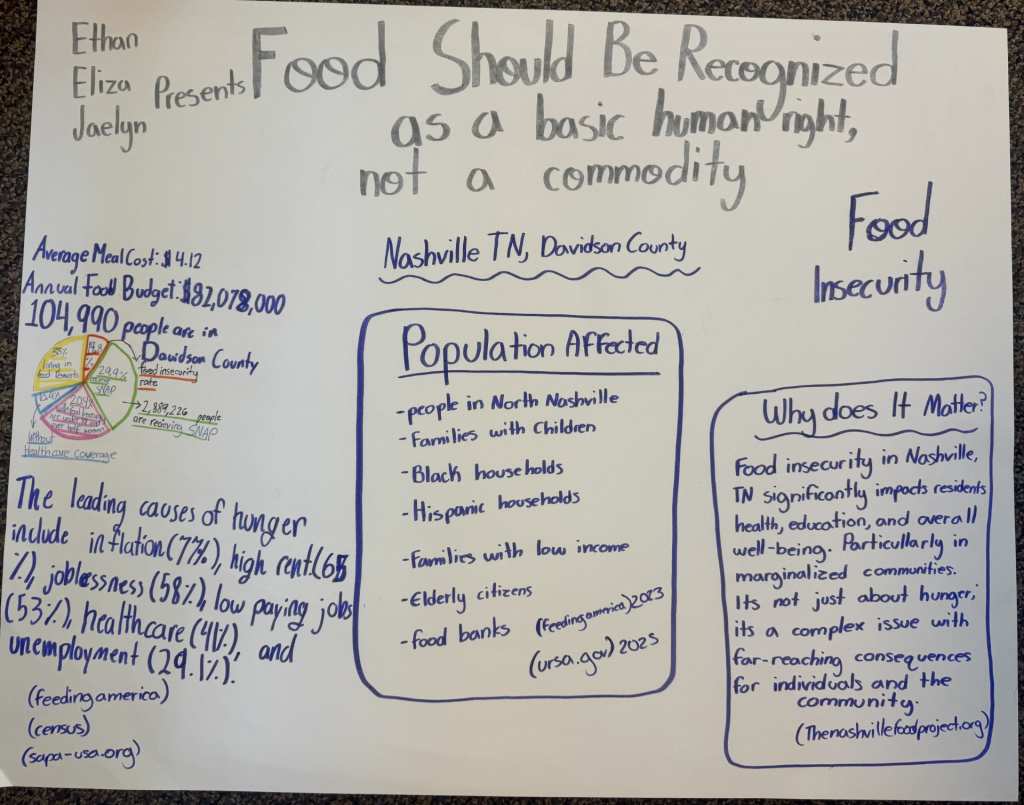 Ethan
Eliza
Jaelyn
Presents
Food Should Be Recognized
as a basic human right,
not a commodity
Average Meal Cost: $4.12
Annual Food Budget: $82,078,000
104,990 people are in
Davidson County
food insecurity
rate
14.8
%
29.9%
SNAP
→ 2,889,226 people
are recieving SNAP
living in
food deserts
Without
Healthcare coverage
The leading causes of hunger
include inflation (77%), high rent (65
%), joblessness (58%), low paying jobs
(53%), healthcare (41%), and
unemployment (29.1%).
(feedingamerica)
(census)
(sapa-usa.org)
Nashville TN, Davidson County
Population Affected
-people in North Nashville
-Families with Children
-Black households
-Hispanic households
-Families with low income
-Elderly citizens
-food banks (feedingamerica) 2023
(ursa.gov) 2025
Food
Insecurity
Why does It Matter?
Food insecurity in Nashville,
TN significantly impacts residents
health, education, and overall
well-being. Particullarly in
marginalized communities.
Its not just about hunger,
its a complex issue with
far-reaching consequences
for individuals and the
community.
(Thenashvillefoodproject.org)